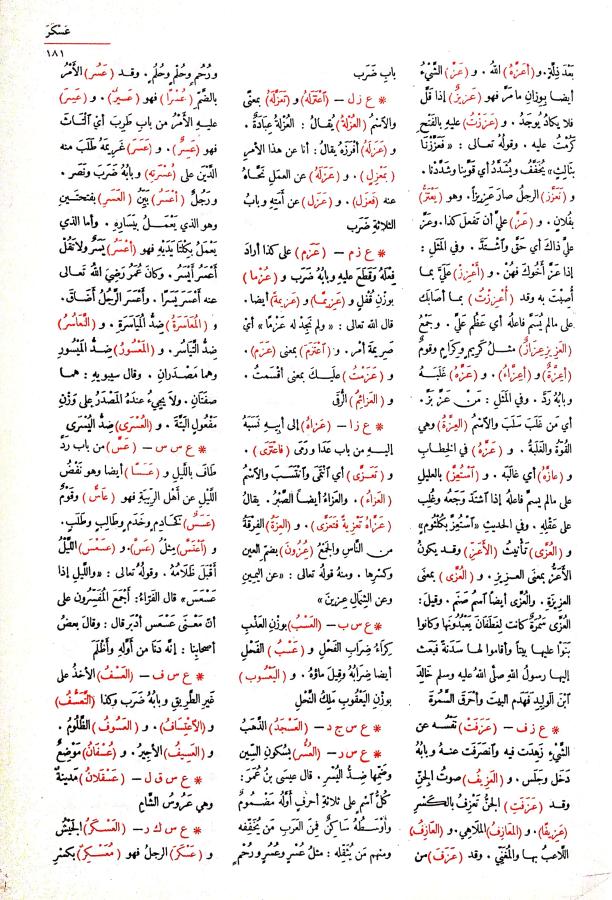 عَسْكَرَ
١٨١
بَعْدَ ذِلَّةٍ. و (أَعَزَّهُ) اللهُ. و (عَزَّ) الشَّيْءُ
أيضا بوزانِ ما مَرَّ فهو (عَزِيزٌ) إذا قَلَّ
فلا يكادُ يُوجَدُ. و (عَزَزْتُ) عليه بالفَتْحِ
كَرُمْتُ عليه. وقولُه تعالى: «فَعَزَّزْنَا
بثالثٍ» يُخَفَّفُ ويُشَدَّدُ أي قَوَّينا وشَدَّدنا.
و (تَعَزَّزَ) الرجلُ صارَ عَزيزاً. وهو (يَعْتَزُّ)
بفُلانٍ. و (عَزَّ) عليَّ أن تَفعلَ كذا. وعَزَّ
عليَّ ذاكَ أي حَقَّ واشْتَدَّ. وفي المَثَلِ:
إذا عَزَّ أَخُوكَ فَهُنْ. و (أَعْزِزْ) عَلَيَّ بما
أُصِبْتَ به وقد (أُعْزِزْتُ) بما أصابَكَ
على مالم يُسَمَّ فاعلُهُ أي عَظُمَ عَلَيَّ. وجَمْعُ
(العَزِيزِ عِزَازٌ) مثلُ كَريمٍ وكِرَامٍ وقومٌ
(أعِزَّةٌ) و (أَعِزَّاءُ). و (عَزَّهُ) غَلَبَهُ
وبابُه رَدَّ. وفي المَثَلِ: مَنْ عَزَّ بَزَّ.
أي مَن غَلَبَ سَلَبَ والاسْمُ (العِزَّةُ) وهي
القُوّةُ والغَلَبَةُ. و (عَزَّهُ) في الخِطابِ
و (عازَّهُ) أي غالَبَه. و (اسْتُعِزَّ) بالعليلِ
على مالم يسمَّ فاعلُهُ إذا اشتَدَّ وَجَعُهُ وغُلِب
على عَقْلِه. وفي الحديثِ «اسْتُعِزَّ بكُلْثُومٍ»
و (العُزَّى) تأنيثُ (الأَعَزِّ) وقد يكونُ
الأَعَزُّ بمعنى العزيزِ. و (العُزَّى) بمعنى
العزيزةِ. والعُزَّى أيضاً اسمُ صَنَمٍ. وقيلَ:
العُزَّى سَمُرَةٌ كانت لغَطَفَانَ يَعبُدُونَها وكانوا
بَنَوْا عليها بيتاً وأقاموا لها سَدَنَةً فبَعَثَ
إليها رسولُ اللهِ صلّى اللهُ عليه وسلم خالدَ
ابْنَ الوليدِ فهَدَم البيتَ وأحْرَقَ السَّمُرَةَ
* ع ز ف – (عَزَفَتْ) نَفْسُه عن
الشَّيْءِ زَهِدَت فيه وانْصَرفَت عنه وبابُه
دَخَل وجَلَس. و (العَزِيفُ) صوتُ الجِنِّ
وقد (عَزَفَتِ) الجِنُّ تَعْزِفُ بالكَسْرِ
(عَزِيفًا). و (المَعَازِفُ) المَلاهِي. و (العازِفُ)
اللاعبُ بها والمُغَنِّي. وقد (عَزَفَ) من
بابِ ضَرَب
* ع ز ل – (اعْتَزَلَهُ) و (تَعَزَّلَهُ) بمعنًى
والاسْمُ (العُزْلَةُ) يُقالُ: العُزْلَةُ عِبَادَةٌ.
و (عَزَلَهُ) أَفْرَزَه يقالُ: أنا عن هذا الأمرِ
(بمَعْزِلٍ). و (عَزَلَهُ) عن العملِ نَحَّاهُ
عنه (فعَزَلَ). و (عَزَل) عن أَمَتِه وبابُ
الثلاثةِ ضَرَب
* ع ز م – (عَزَم) على كذا أرادَ
فِعْلَهُ وقَطَعَ عليه وبابُه ضَرَب و (عُزْما)
بوزن قُفْلٍ و (عَزِيمًا) و (عَزِيمةً) أيضا.
قال اللهُ تعالى: «ولم نَجِدْ له عَزْمًا» أيْ
صَرِيمةَ أَمْرٍ. و (اعْتَزَم) بمعنى (عَزَم).
و (عَزَمْتُ) عليكَ بمعنى أقْسَمتُ.
و (العَزائِمُ) الرُّقَى
* ع ز ا – (عَزاهُ) إلى أبيه نَسَبَهُ
إليه من باب عَدَا ورَمَى (فاعْتَزَى).
و (تَعَزَّى) أي انْتَمَى وانتَسَبَ والاسْمُ
(العَزاءُ). والعَزاءُ أيضاً الصَّبْرُ. يقالُ
(عَزَّاهُ تَعْزِيةً فتَعَزَّى). و (العِزَةُ) الفِرْقَةُ
من النَّاسِ والجَمْعُ (عِزُونَ) بضمّ العين
وكسْرِها. ومنهُ قولُه تعالى: «عن اليمينِ
وعن الشِّمالِ عِزِينَ»
* ع س ب – (العَسْبُ) بوزن العَذْبِ
كِرَاءُ ضِرَابِ الفَحْلِ و (عَسْبُ) الفَحْلِ
أيضا ضِرَابُهُ وقيلَ ماؤهُ. و (اليَعْسُوب)
بوزن اليَعْقُوبِ مَلِكُ النَّحْلِ
* ع س ج د – (العَسْجَدُ) الذَّهَبُ
* ع س ر – (العُسْرُ) بسُكونِ السِّينِ
وضَمِّها ضِدُّ اليُسْرِ. قالَ عيسى بنُ عُمَرَ:
كلُّ اسمٍ على ثلاثةِ أحرفٍ أوَّلُه مَضْمُومٌ
وأوْسَطُه ساكِنٌ فمِنَ العَرَبِ مَن يُخَفِّفُه
ومنهم مَن يُثَقِّلُه: مثلُ عُسْرٍ وعُسُرٍ ورُحْمٍ
ورُحُمٍ وحُلْمٍ وحُلُمٍ. وقد (عَسُر) الأَمْرُ
بالضَّمِّ (عُسْرًا) فهو (عَسِيرٌ). و (عَسِرَ)
عليه الأَمْرُ من بابِ طَرِبَ أي الْتَاثَ
فهو (عَسِرٌ). و (عَسَرَ) غَرِيمَهُ طَلَبَ منه
الدَّيْن على (عُسْرَتِه) وبابُه ضَرَب ونَصَر.
ورجُلٌ (أَعْسَرُ) بَيِّنُ (العَسَرِ) بفَتحتينِ
وهو الذي يَعْمَلُ بيَسَارِه. وأما الذي
يَعْمَلُ بكِلْتَا يَدَيْهِ فهو (أَعْسَرُ) يَسَرٌ ولا تَقُلْ
أَعْسَرُ أَيْسَرُ. وكانَ عُمَرُ رَضِيَ اللهُ تعالى
عنه أَعْسَرَ يَسَرًا. وأَعْسَرَ الرَّجُلُ أَضَاقَ.
و (المُعَاسَرَةُ) ضِدُّ المُيَاسَرَةِ. و (التَّعاسُرُ)
ضِدُّ التَّياسُرِ. و (المَعْسُورُ) ضِدُّ المَيْسُورِ
وهما مَصْدَرانِ. وقال سيبويهِ: هما
صفتانِ. ولا يَجِيءُ عندَهُ المَصْدَرُ على وَزْنِ
مَفْعُولٍ البَتَّةَ. و (العُسْرَى) ضِدُّ اليُسْرَى
* ع س س – (عَسَّ) من باب رَدَّ
طافَ باللَّيلِ و (عَسَسًا) أيضا وهو نَفْضُ
اللَّيلِ عن أهلِ الرِّيبَةِ فهو (عَاسٌّ) وقَوْمٌ
(عَسَسٌ) كخَادِمٍ وخَدَمٍ وطالِبٍ وطَلَبٍ.
و (اعْتَسَّ) مِثْلُ (عَسَّ). و (عَسْعَسَ) اللَّيْلُ
أَقْبَلَ ظَلَامُهُ. وقولُه تعالى: «واللَّيلِ إذا
عَسْعَسَ» قال الفَرَّاءُ: أَجْمَعَ المُفَسِّرُونَ على
أنَّ مَعْنَى عَسْعَسَ أَدْبَرَ قال: وقالَ بعضُ
أصحابِنا: إنَّه دَنَا من أوّلِهِ وأَظْلَمَ
* ع س ف – (العَسْفُ) الأَخذُ على
غَيرِ الطَّريقِ وبابُه ضَرَب وكذا (التَّعَسُّفُ)
و (الاعْتِسَافُ). و (العَسُوفُ) الظَّلُومُ.
و (العَسِيفُ) الأَجيرُ. و (عُسْفَانُ) مَوْضِعٌ
* ع س ق ل – (عَسْقَلَانُ) مَدينةٌ
وهي عَرُوسُ الشَّامِ
* ع س ك ر – (العَسْكَرُ) الجَيْشُ
و (عَسْكَرَ) الرجلُ فهو (مُعَسْكِرٌ) بكسْرِ